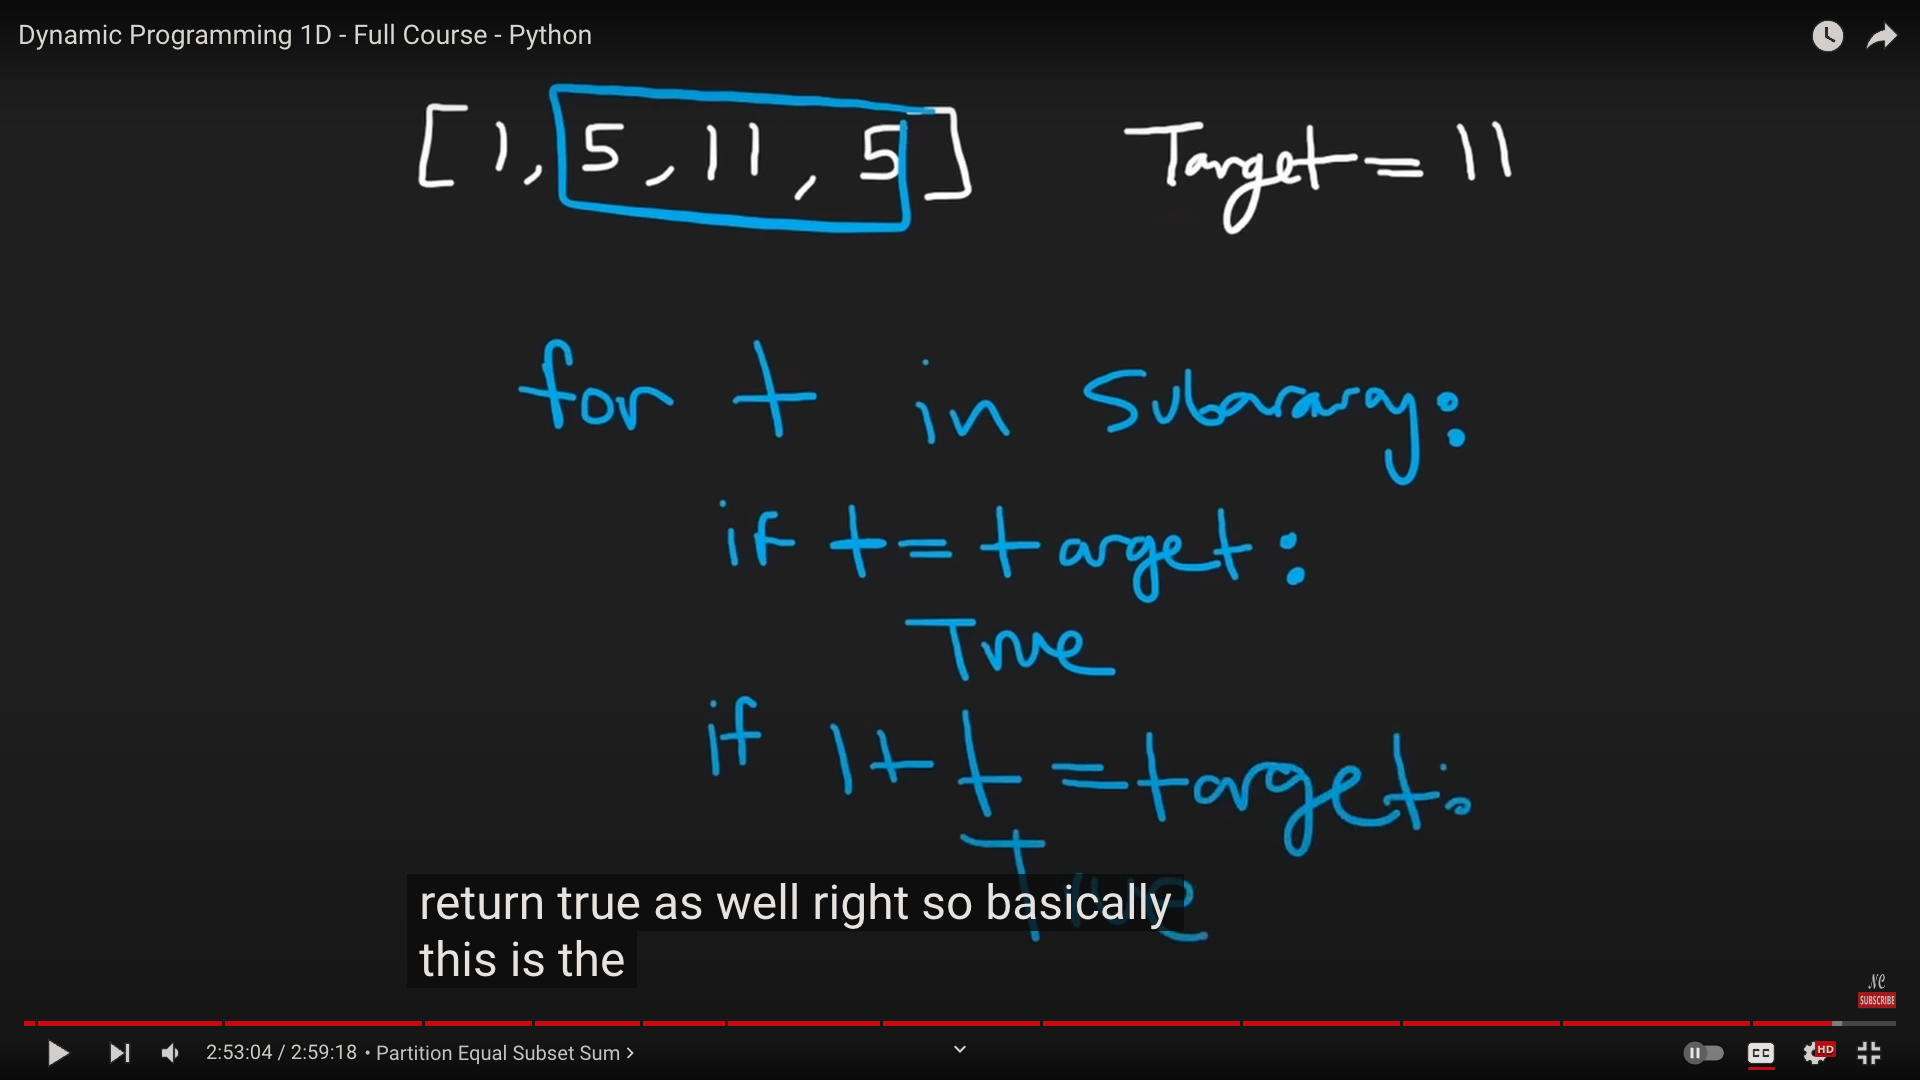 Dynamic Programming 1D - Full Course - Python
[1, 5, 11, 5] Target = 11
for t in Subararay:
if t = target:
True
if 1 + t = target:
True
return true as well right so basically
this is the
NC
SUBSCRIBE
2:53:04 / 2:59:18 • Partition Equal Subset Sum >
CC
HD